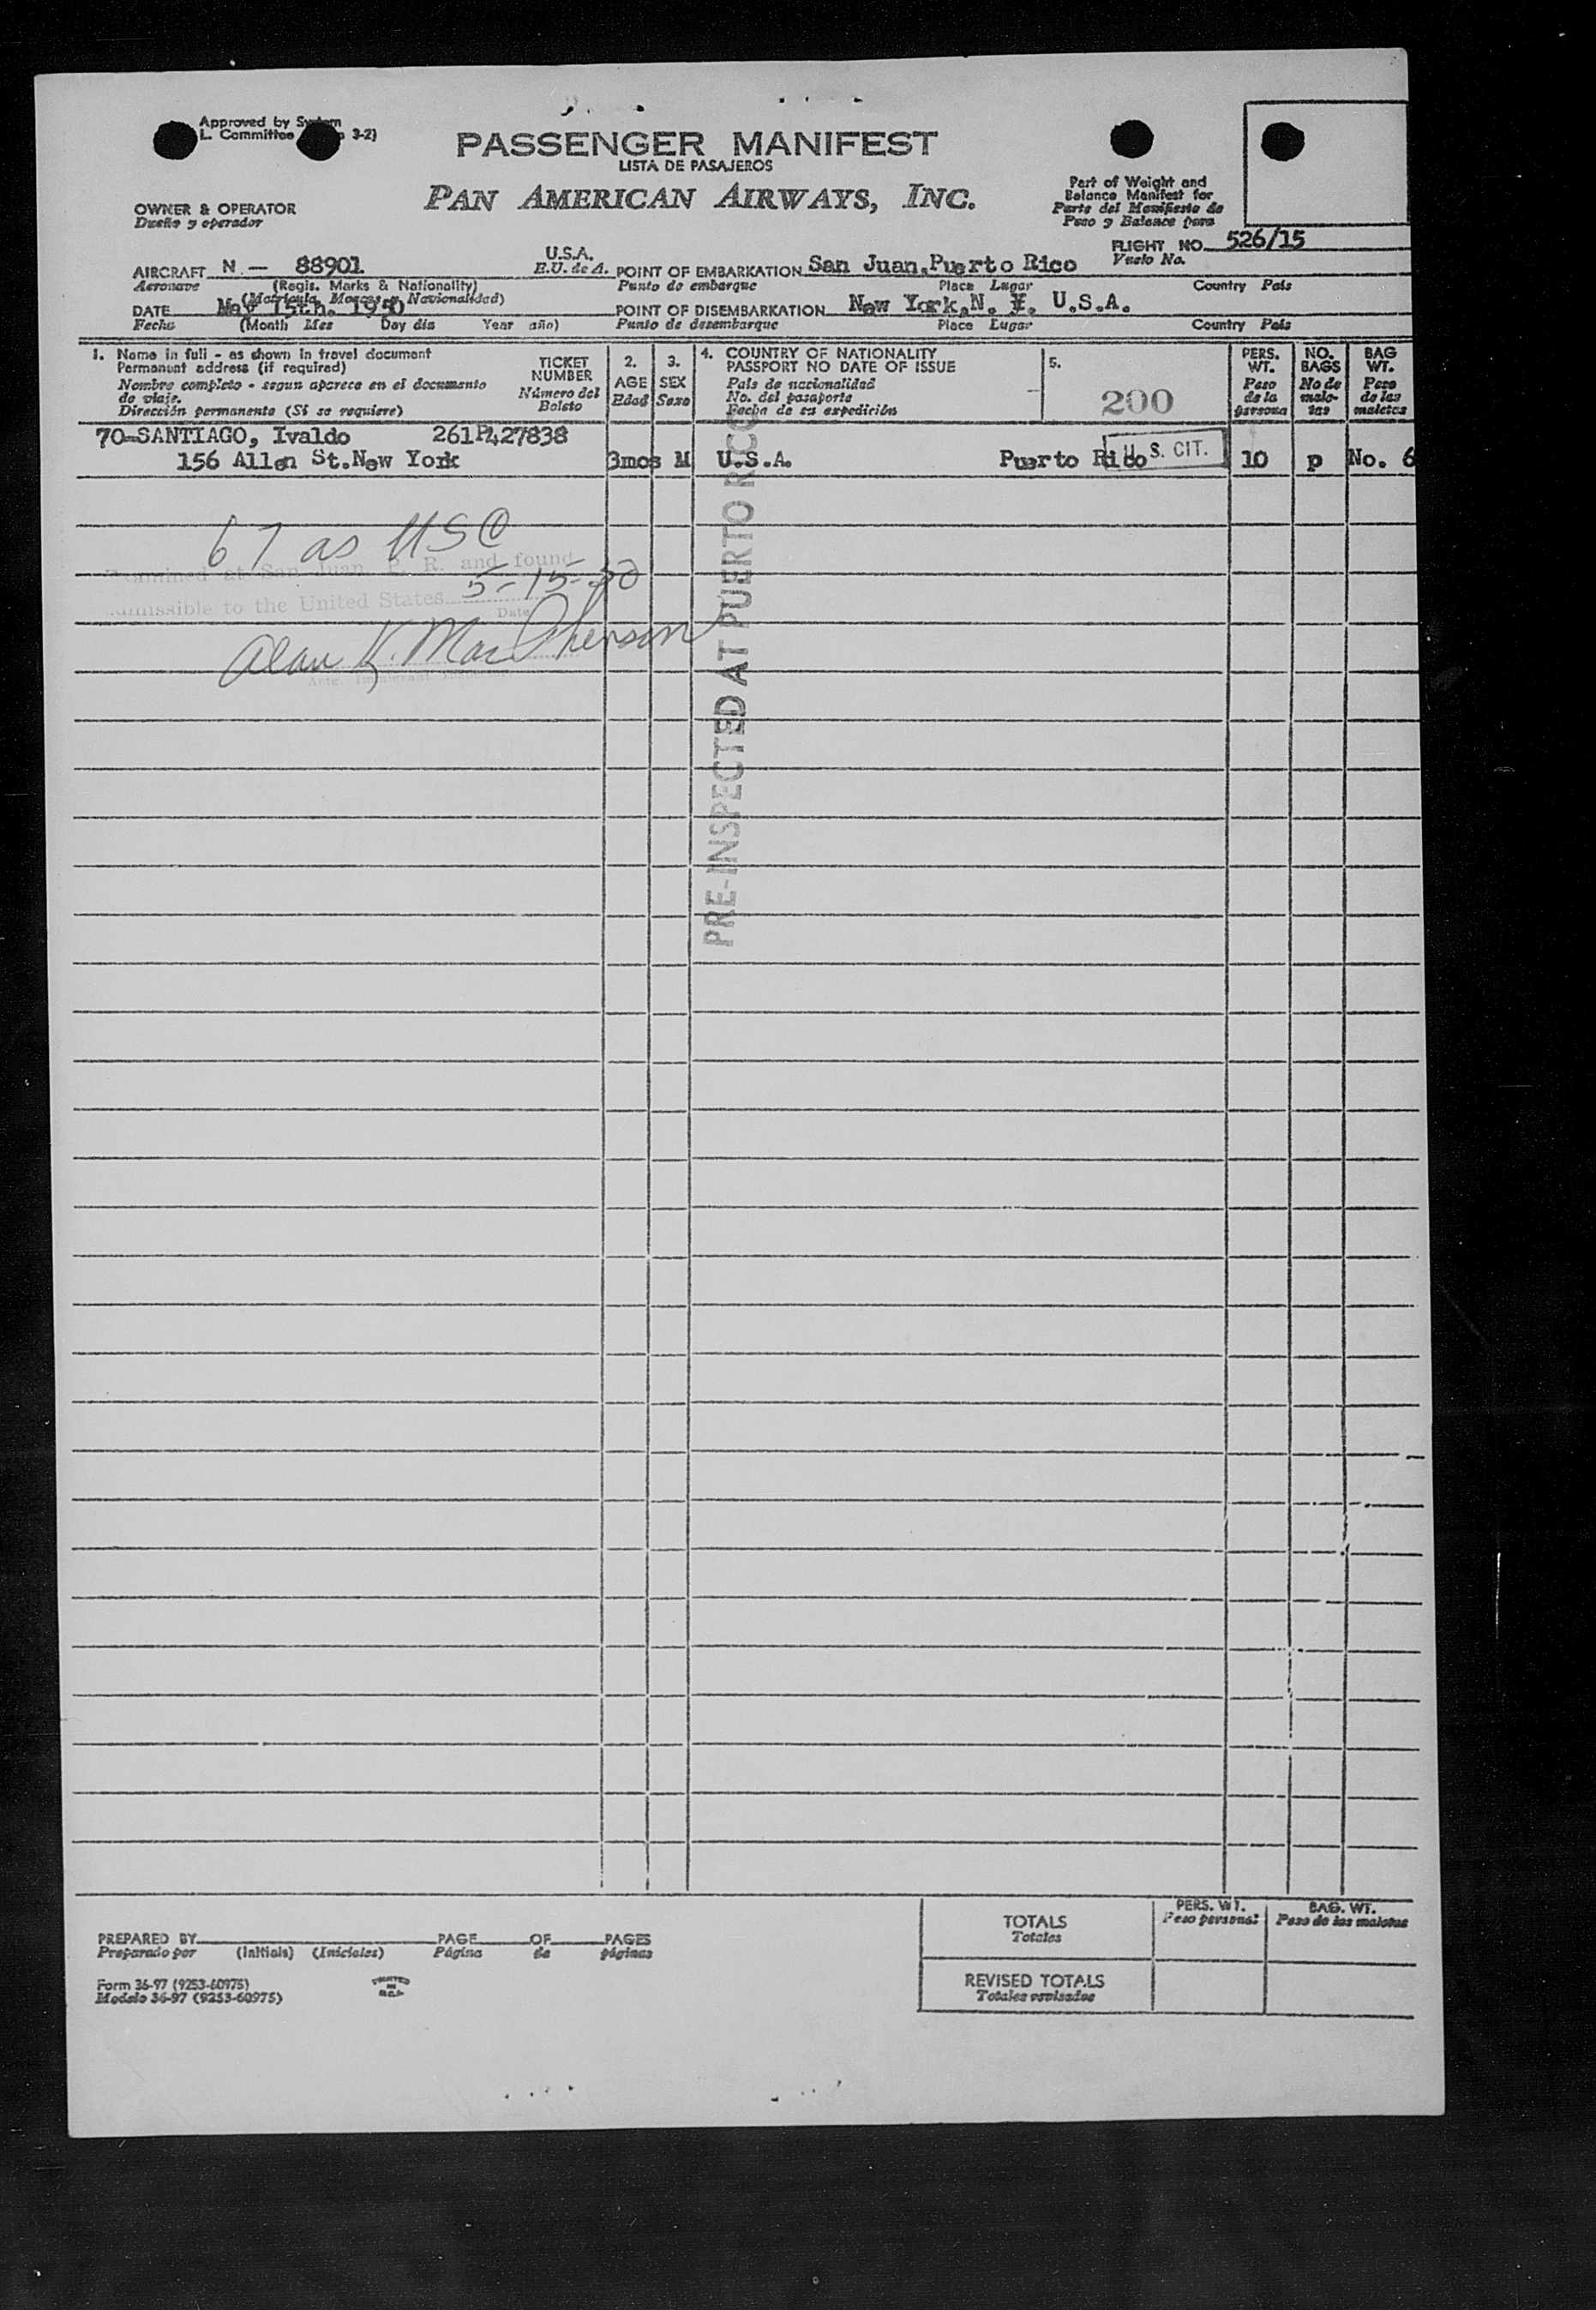 Approved by System
L. Committee 3-2)
PASSENGER MANIFEST
LISTA DE PASAJEROS
PAN AMERICAN AIRWAYS, INC.
OWNER & OPERATOR
Dueño y operador
Part of Weight and
Balance Manifest for
Parte del Manifiesto de
Peso y Balance para
FLIGHT NO. 526/15
Vuelo No.
AIRCRAFT N — 88901 U.S.A.
Aeronave (Regis. Marks & Nationality) E.U. de A.
(Matricula, Marcas y Nacionalidad)
POINT OF EMBARKATION San Juan,Puerto Rico
Punto de embarque Place Lugar Country País
DATE May 15th. 1950
Fecha (Month Mes Day día Year año)
POINT OF DISEMBARKATION New York,N. Y. U.S.A.
Punto de desembarque Place Lugar Country País
1. Name in full - as shown in travel document
Permanent address (if required)
Nombre completo - segun aparece en el documento
de viaje.
Dirección permanente (Si se requiere)
TICKET
NUMBER
Número del
Boleto
2.
AGE
Edad
3.
SEX
Sexo
4. COUNTRY OF NATIONALITY
PASSPORT NO DATE OF ISSUE
País de nacionalidad
No. del pasaporte
Fecha de su expedición
5.
200
PERS.
WT.
Peso
de la
persona
NO.
BAGS
No de
male-
tas
BAG
WT.
Peso
de las
maletas
70-SANTIAGO, Ivaldo 261P427838
156 Allen St.New York 3mos M U.S.A. Puerto Rico U. S. CIT. 10 p No. 6
67 as USC
Examined at San Juan, P. R. and found
5-15-50
admissible to the United States
Date
Alan K. MacPherson
PRE-INSPECTED AT PUERTO RICO
PREPARED BY PAGE OF PAGES
Preparado por (Initials) (Iniciales) Página de páginas
Form 36-97 (9253-60975)
Modelo 36-97 (9253-60975)
PRINTED
IN
U.S.A.
PERS. WT.
Peso personal
BAG. WT.
Peso de las maletas
TOTALS
Totales
REVISED TOTALS
Totales revisados